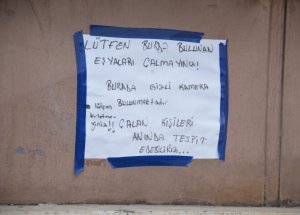 LÜTFEN BURDA BULUNAN
EŞYALARI ÇALMAYINIZ!
BURADA GİZLİ KAMERA
BULUNMAKTADIR
ÇALAN KİŞİLERİ
ANINDA TESPİT
EDEBİLİRİZ...